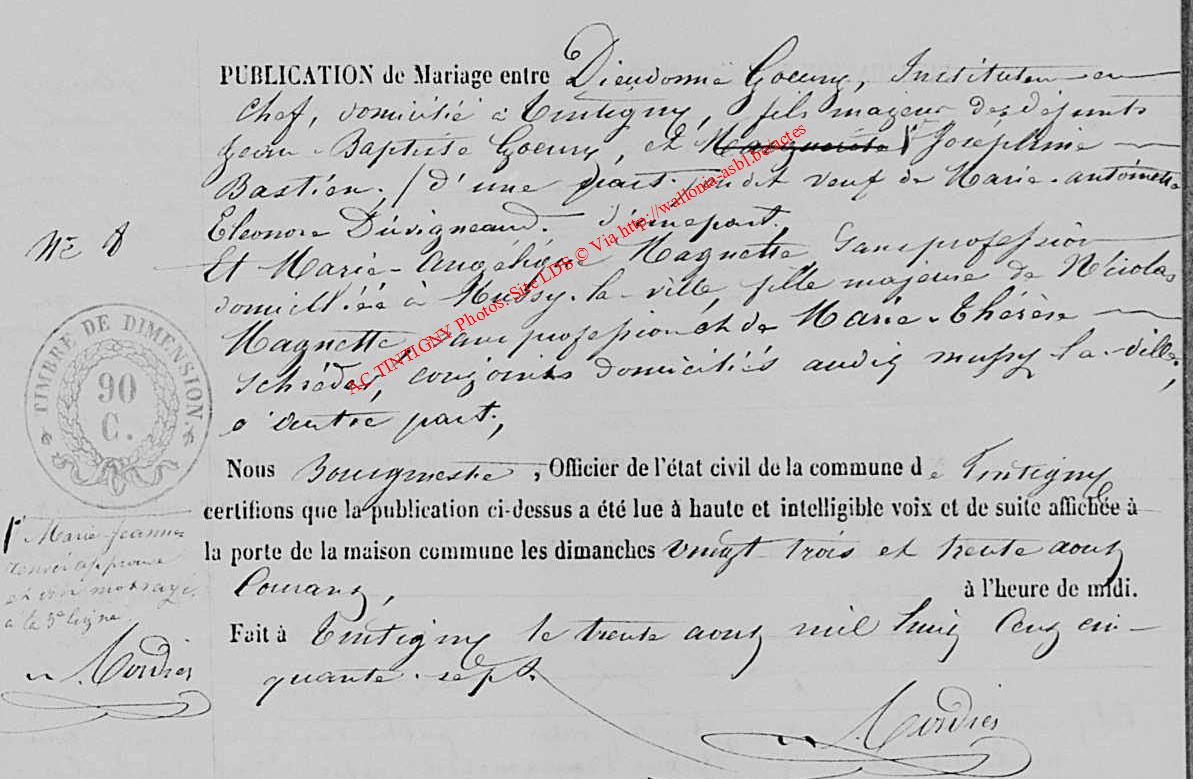 PUBLICATION de Mariage entre Dieudonné Goeury, Instituteur en
chef, domicilié à Tintigny, fils majeur des défunts
Jean-Baptiste Goeury, et Marguerite Joséphine
Bastien, / d'une part. veuf de Marie-Antoinette
Eleonore Duvigneaud. d'une part,
N° 8
Et Marie-Angélique Magnette, Sans profession
domiciliée à Mussy-la-ville, fille majeure de Nicolas
Magnette, sans profession et de Marie-Thérèse
Schréder, conjoints domiciliés audit mussy-la-ville,
d'autre part,
TIMBRE DE DIMENSION.
90
C.
Nous Bourgmestre, Officier de l'état civil de la commune de Tintigny
certifions que la publication ci-dessus a été lue à haute et intelligible voix et de suite affichée à
la porte de la maison commune les dimanches vingt trois et trente aout
Courant, à l'heure de midi.
Fait à Tintigny le trente aout mil huit Cent cin-
quante-sept.
Marie Jeanne
renvoi approuvé
et un mot rayé
à la 3e ligne
Mordier
Mordier
AC TINTIGNY Photos. Site LDS © Via http://wallonia-asbl.be/actes